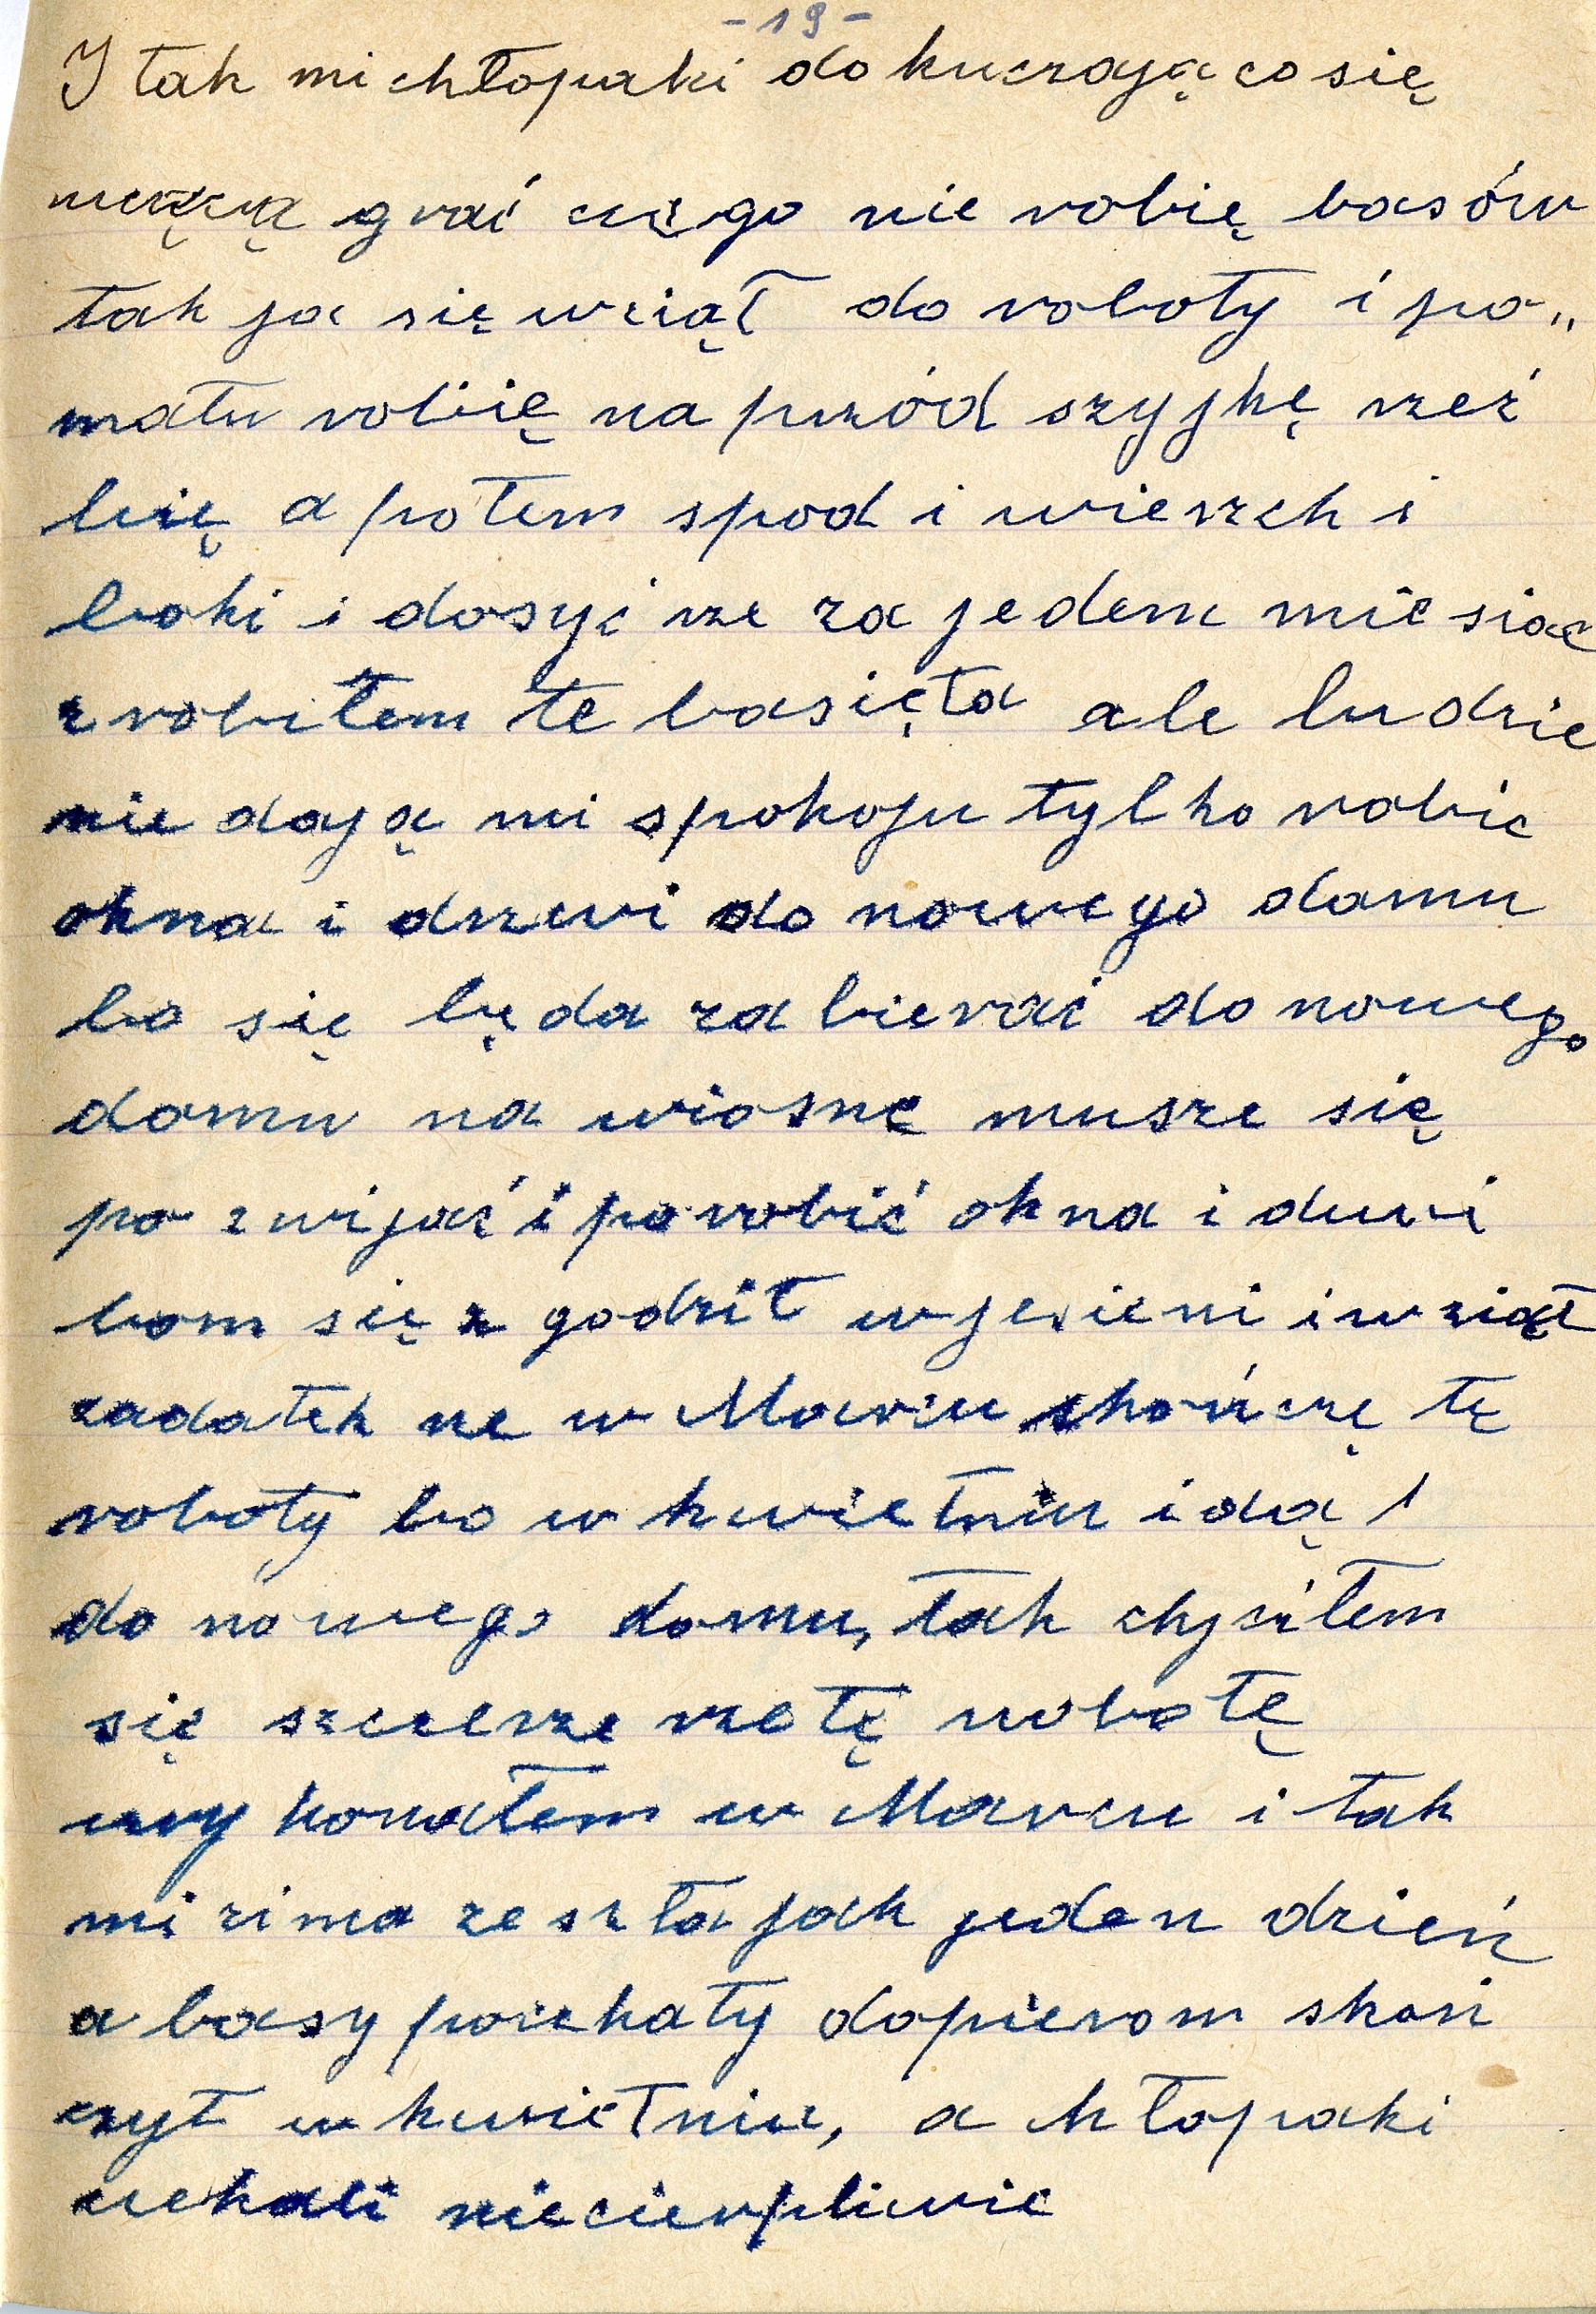 - 19 -
I tak mi chłopaki dokuczają co się
uczą grać czego nie robię basów
tak ja się wziął do roboty i po„
matu robię na przód szyjkę rzeź
bię a potem spod i wierzch i
boki i dosyć rze za jeden miesiac
zrobiłem te basięta ale ludzie
nie dają mi spokoju tylko robic
okna i drzwi do nowego domu
bo się będa zabierać do nowego
domu na wiosnę musze się
pozwijać i porobić okna i drzwi
bom się zgodził w jesieni i wziął
zadatek rze w Marcu skończę tę
roboty bo w kwietniu idą
do nowego domu, tak chyciłem
się szczerze rze tę robotę
wykonałem w Marcu i tak
mi zima zeszła jak jeden dzień
a basy poczekały dopierom skoń
czył w kwietniu, a chłopaki
czekali niecierpliwie